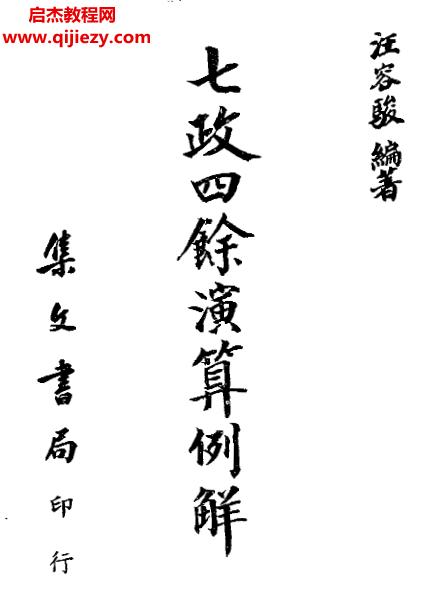 启杰教程网
www.qijiezy.com
汪容駿編著
七政四餘演算例解
集文書局印行